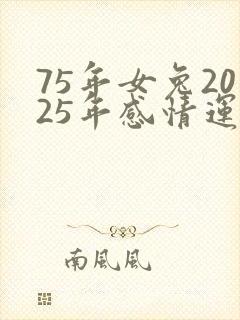 75年女兔20
25年感情運
南風風